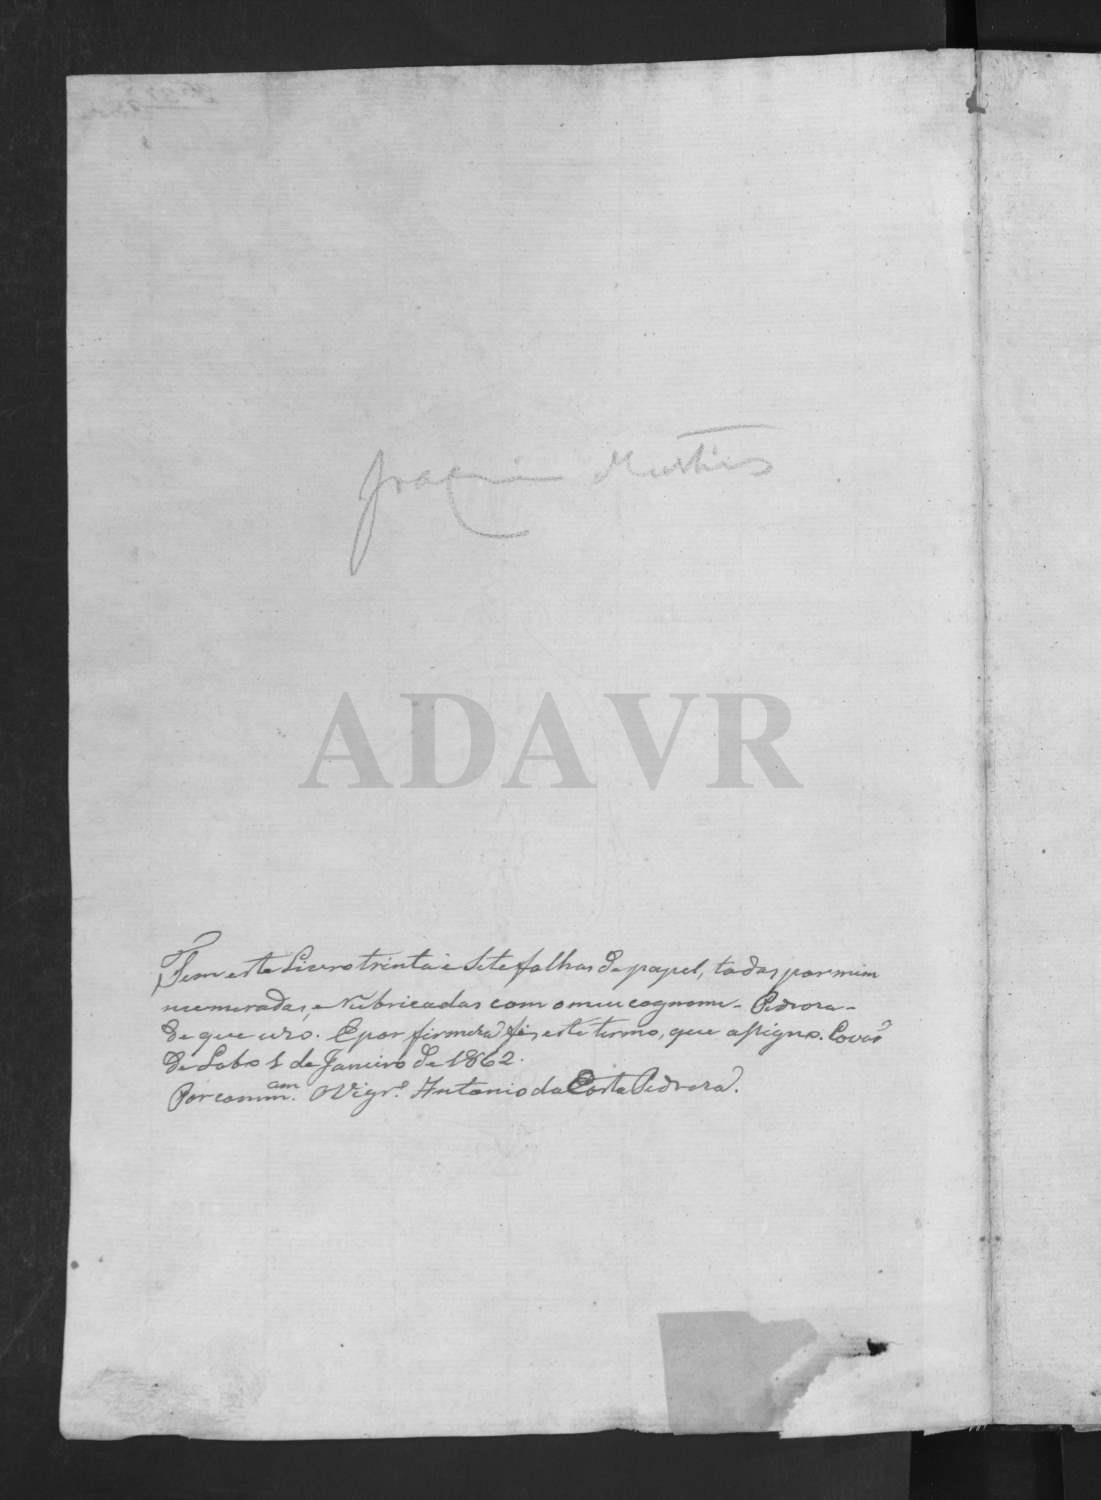 Joaquim Martins
ADAVR
Tem este Livro trinta e Sete folhas de papel, todas por mim
numeradas, e Rubricadas com o meu cognome - Pedroza -
de que uzo. E por firmeza fis este termo, que assigno. Covão
de Lobo 1 de Janeiro de 1862.
Por comm.am O Vigr.o Antonio da Costa Pedroza.